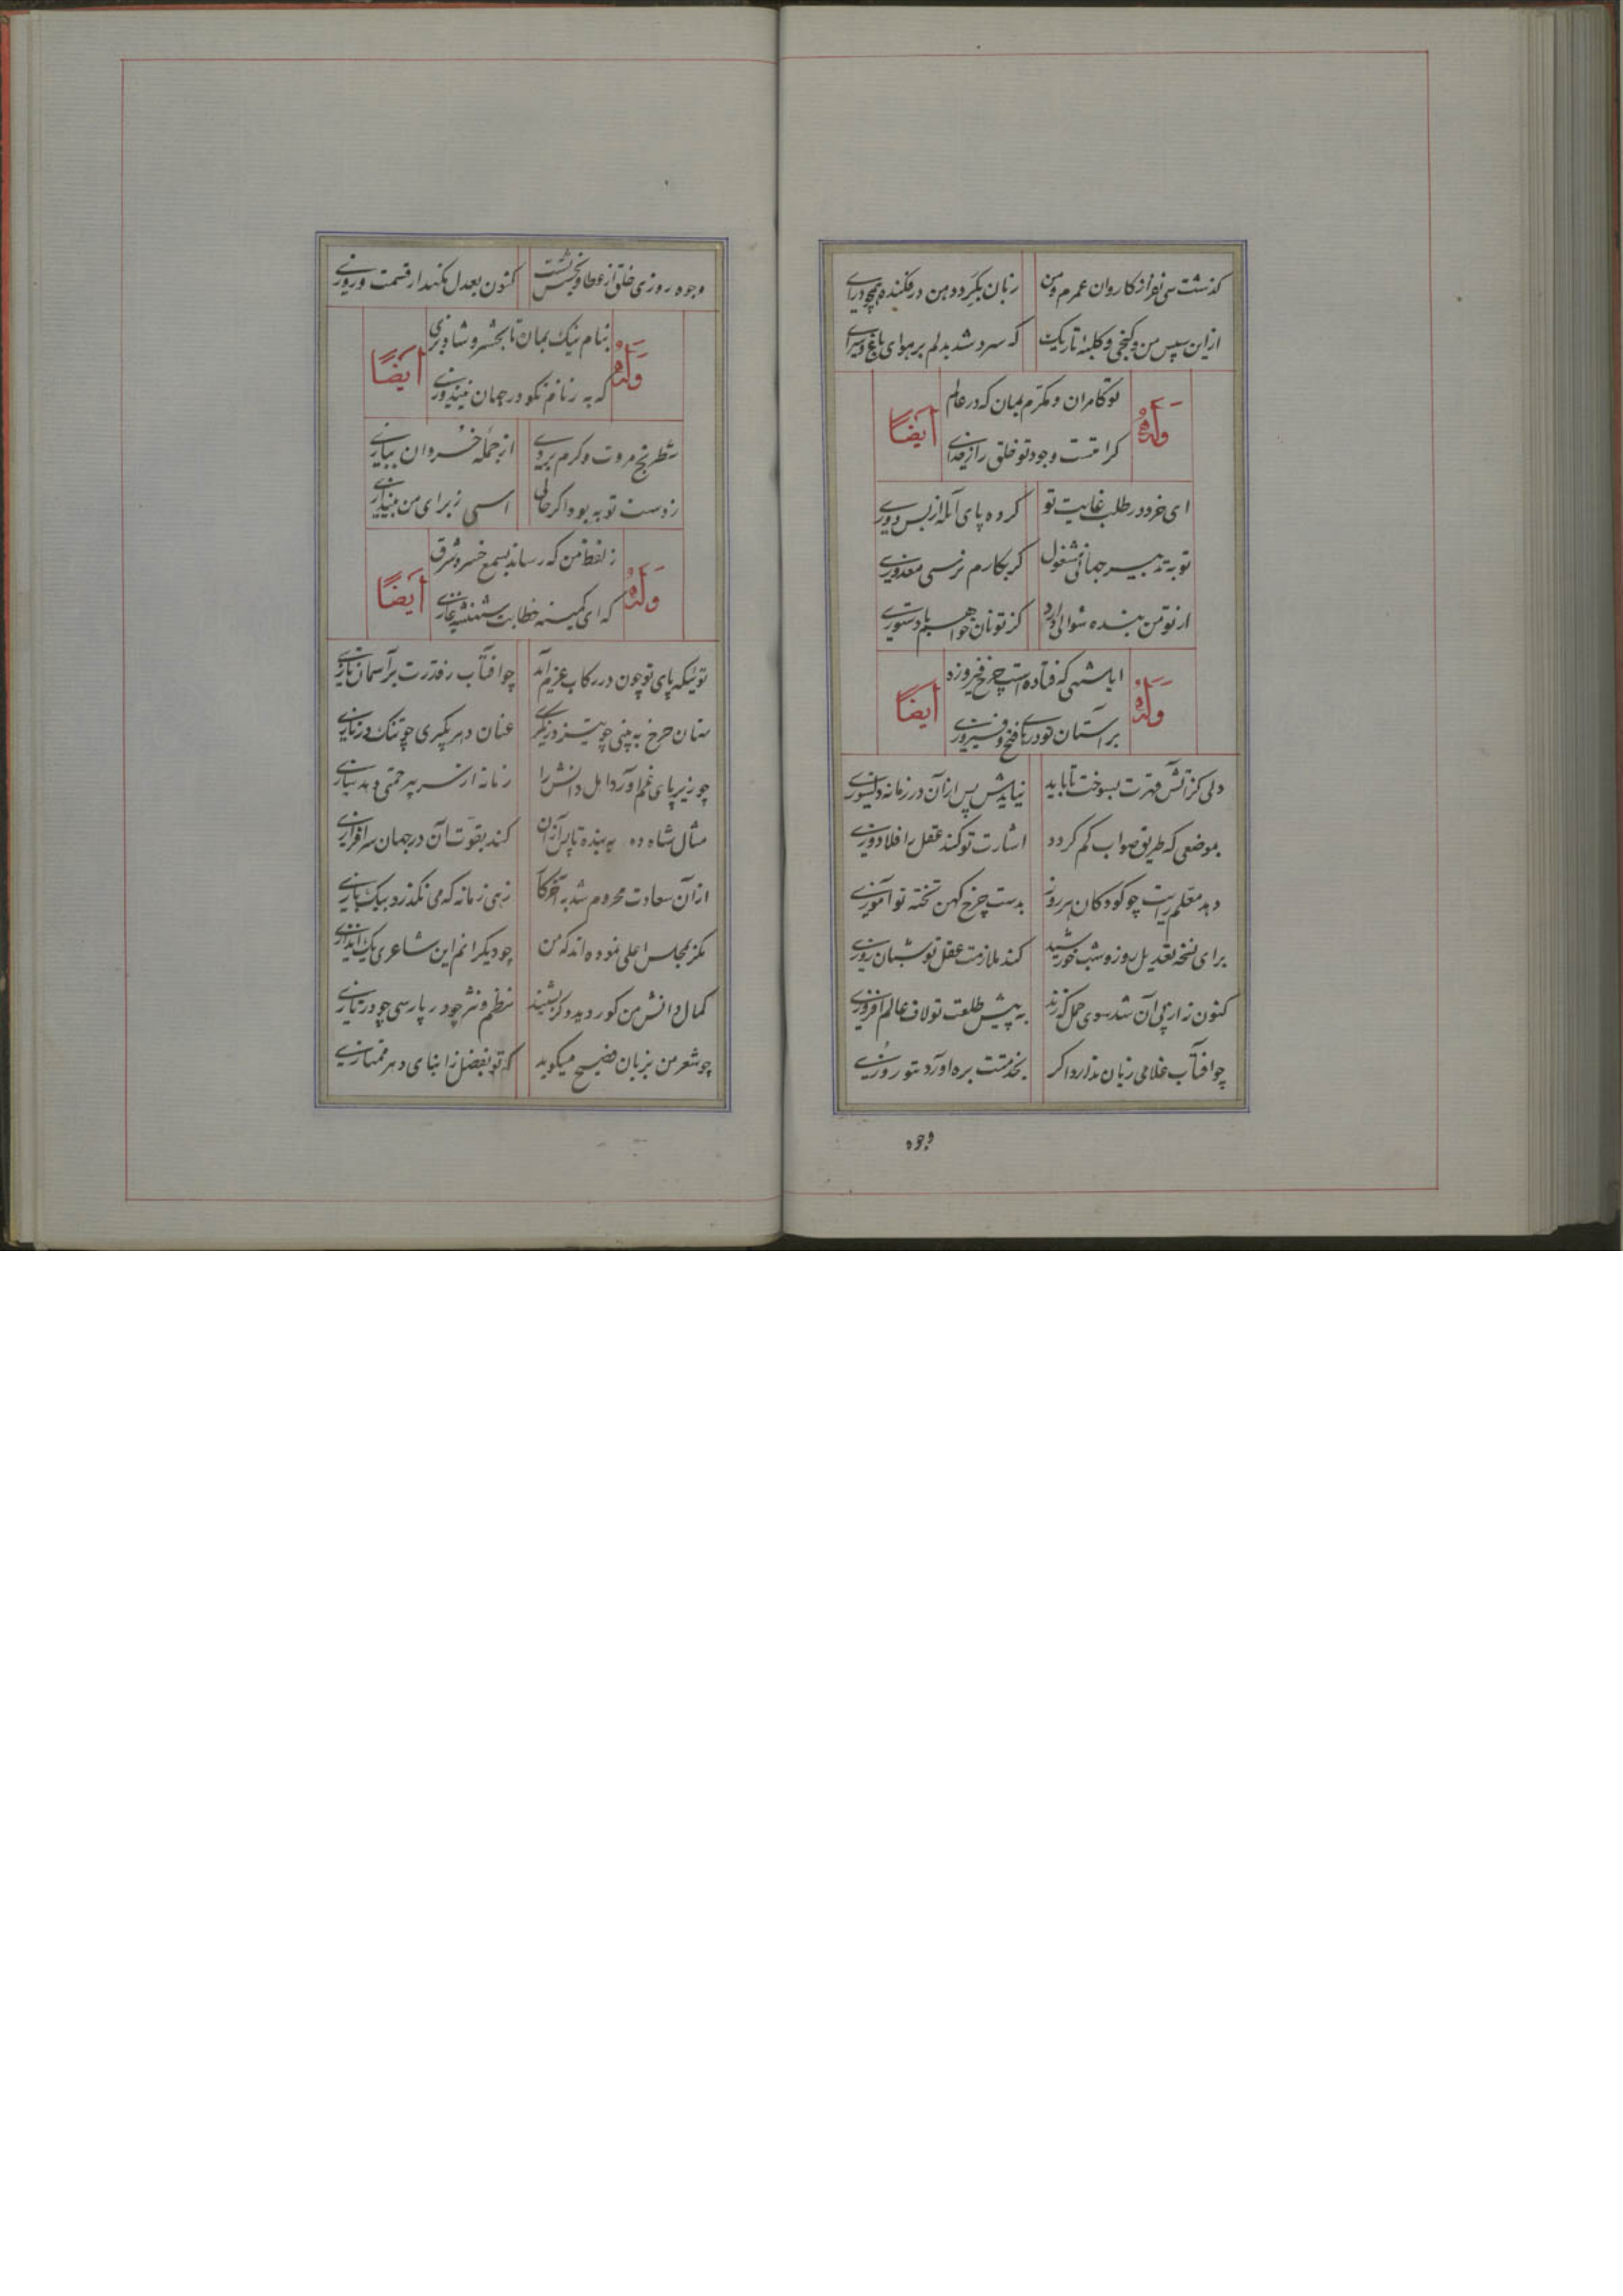 گذشت سی نفر از کاروان عمرم و من زبان بگرد دهن درفکنده همچو درای
ازین سپس من و کنجی و کلبهٔ تاریک که سرد شد بدلم بر هوای باغ و سرای
وله ایضاً
تو کامران و مکرم بمان که در عالم
کرامتست وجود تو خلق را ز خدای
ای خرد در طلب غایت تو کرده پای آبله از بس دوری
تو به تدبیر جهانی مشغول گر بکارم نرسی معذوری
از تو من بنده سؤالی دارد کز تو نان خواهم یا دستوری
وله ایضاً
ایا شهی که فتاده است چرخ فیروزه
بر آستان تو در پای فتح و فیروزی
دلی کز آتش قهرت بسوخت تا باید نیایدش پس از آن در زمانه دلسوزی
بموضعی که طریق صواب گم گردد اشارت تو کند عقل را قلاوزی
دهد معلم رایت چو کودکان هر روز بدست چرخ کهن تخته نوآموزی
برای نسخه تعدیل روز و شب خورشید کند ملازمت عقل تو شبان روزی
کنون ز از پی آن شد سوی حمل کز زند به پیش طلعت تو لاف عالم افروزی
چو آفتاب غلامی زبان ندارد اگر بخدمتت بره آورد تو روزی
وجوه
وجوه روزی خلق از عطا و بخشش تست کنون بعدل نگهدار قسمت و روزی
وله ایضاً
بنام نیک بمان تا بخشر و شاد بزی
که به ز نام نکو در جهان نیندوزی
شطرنج مروت و کرم بردی از جمله خسروان ببازی
ز دست تو به بود اگر حالی اسبی ز برای من بیندازی
وله ایضاً
ز لفظ من که رساند بسمع خسرو شرق
که ای کمینه خطابت شهنشه غازی
توئیکه پای تو چون در رکاب عزم آمد چو آفتاب ز قدرت بر آسمان تازی
سنان چرخ به بینی چو تیز در نگری عنان دهر بگیری چو تنگ در تازی
چو زیر پای غم آورد اهل دانش را زمانه از سر بیرحمتی و بدسازی
مثال شاه ده به بنده تا پس از آن کند بقوت آن در جهان سرافرازی
از آن سعادت محروم شد به آخر کار زهی زمانه که می نگذرد بیک بازی
مگر بمجلس اعلی نموده اند که من چو دیگرانم این شاعری یک اندازی
کمال دانش من کور دید و کر بشنید بنظم و نثر چو در پارسی چو در تازی
چو شعر من بزبان فصیح میگوید که تو بفضل ز ابنای دهر ممتازی